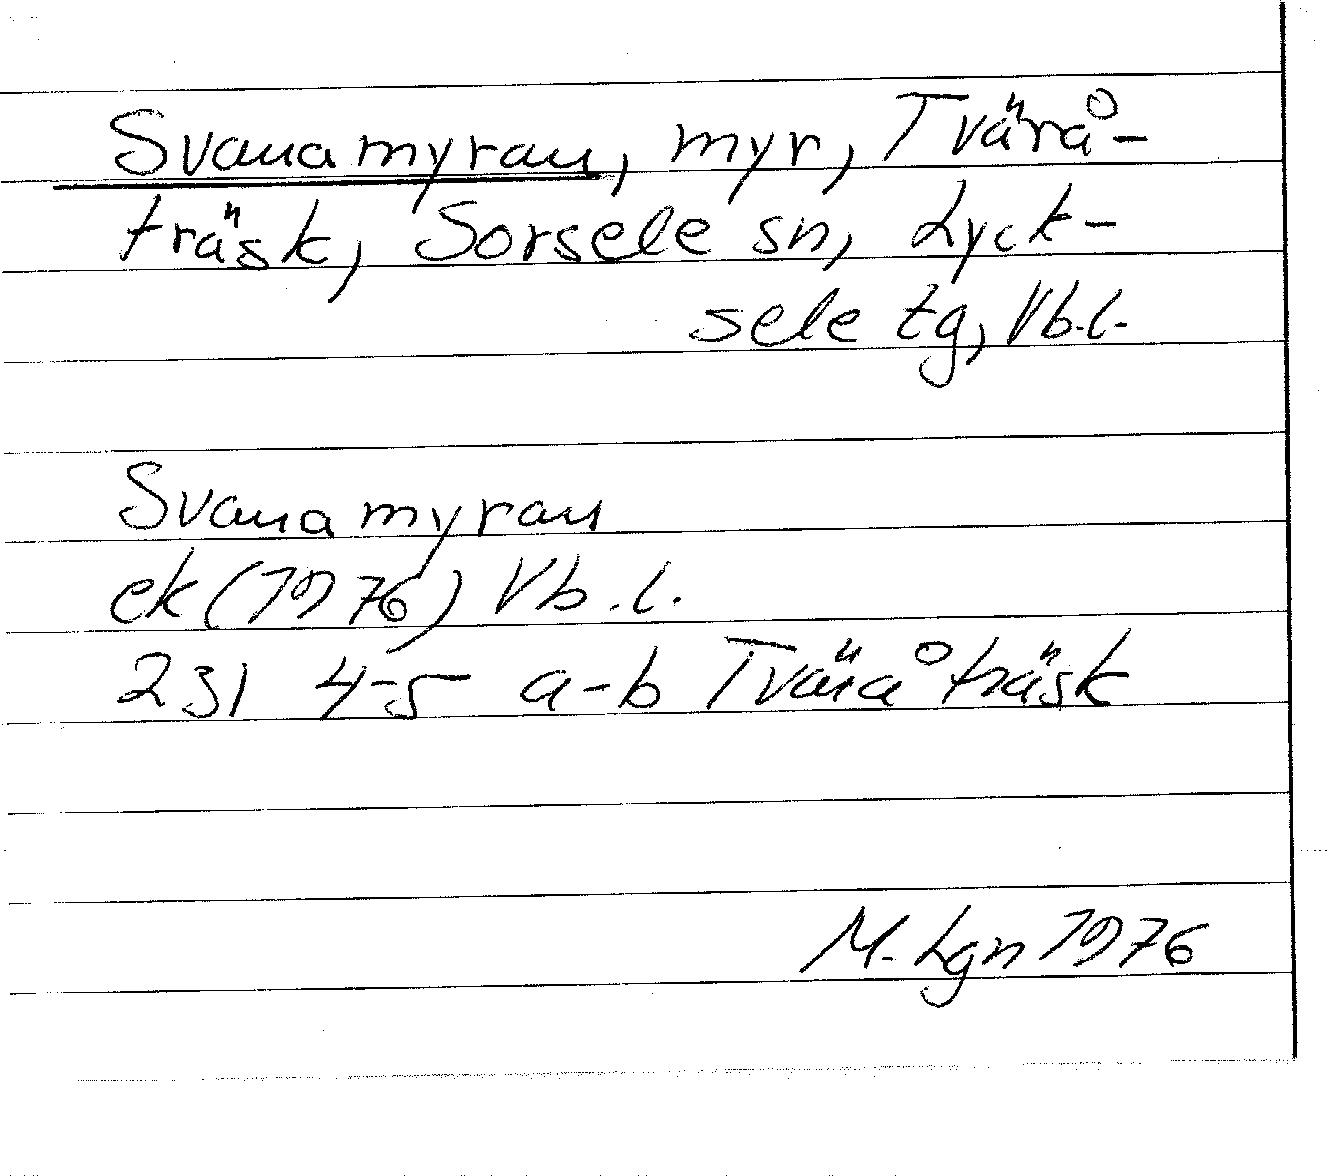 Svanamyran, myr, Tvärå-
träsk, Sorsele sn, Lyck-
sele tg, Vb.l.
Svanamyran
ek (1976) Vb.l.
231 4-5 a-b Tväråträsk
M. Lgn 1976